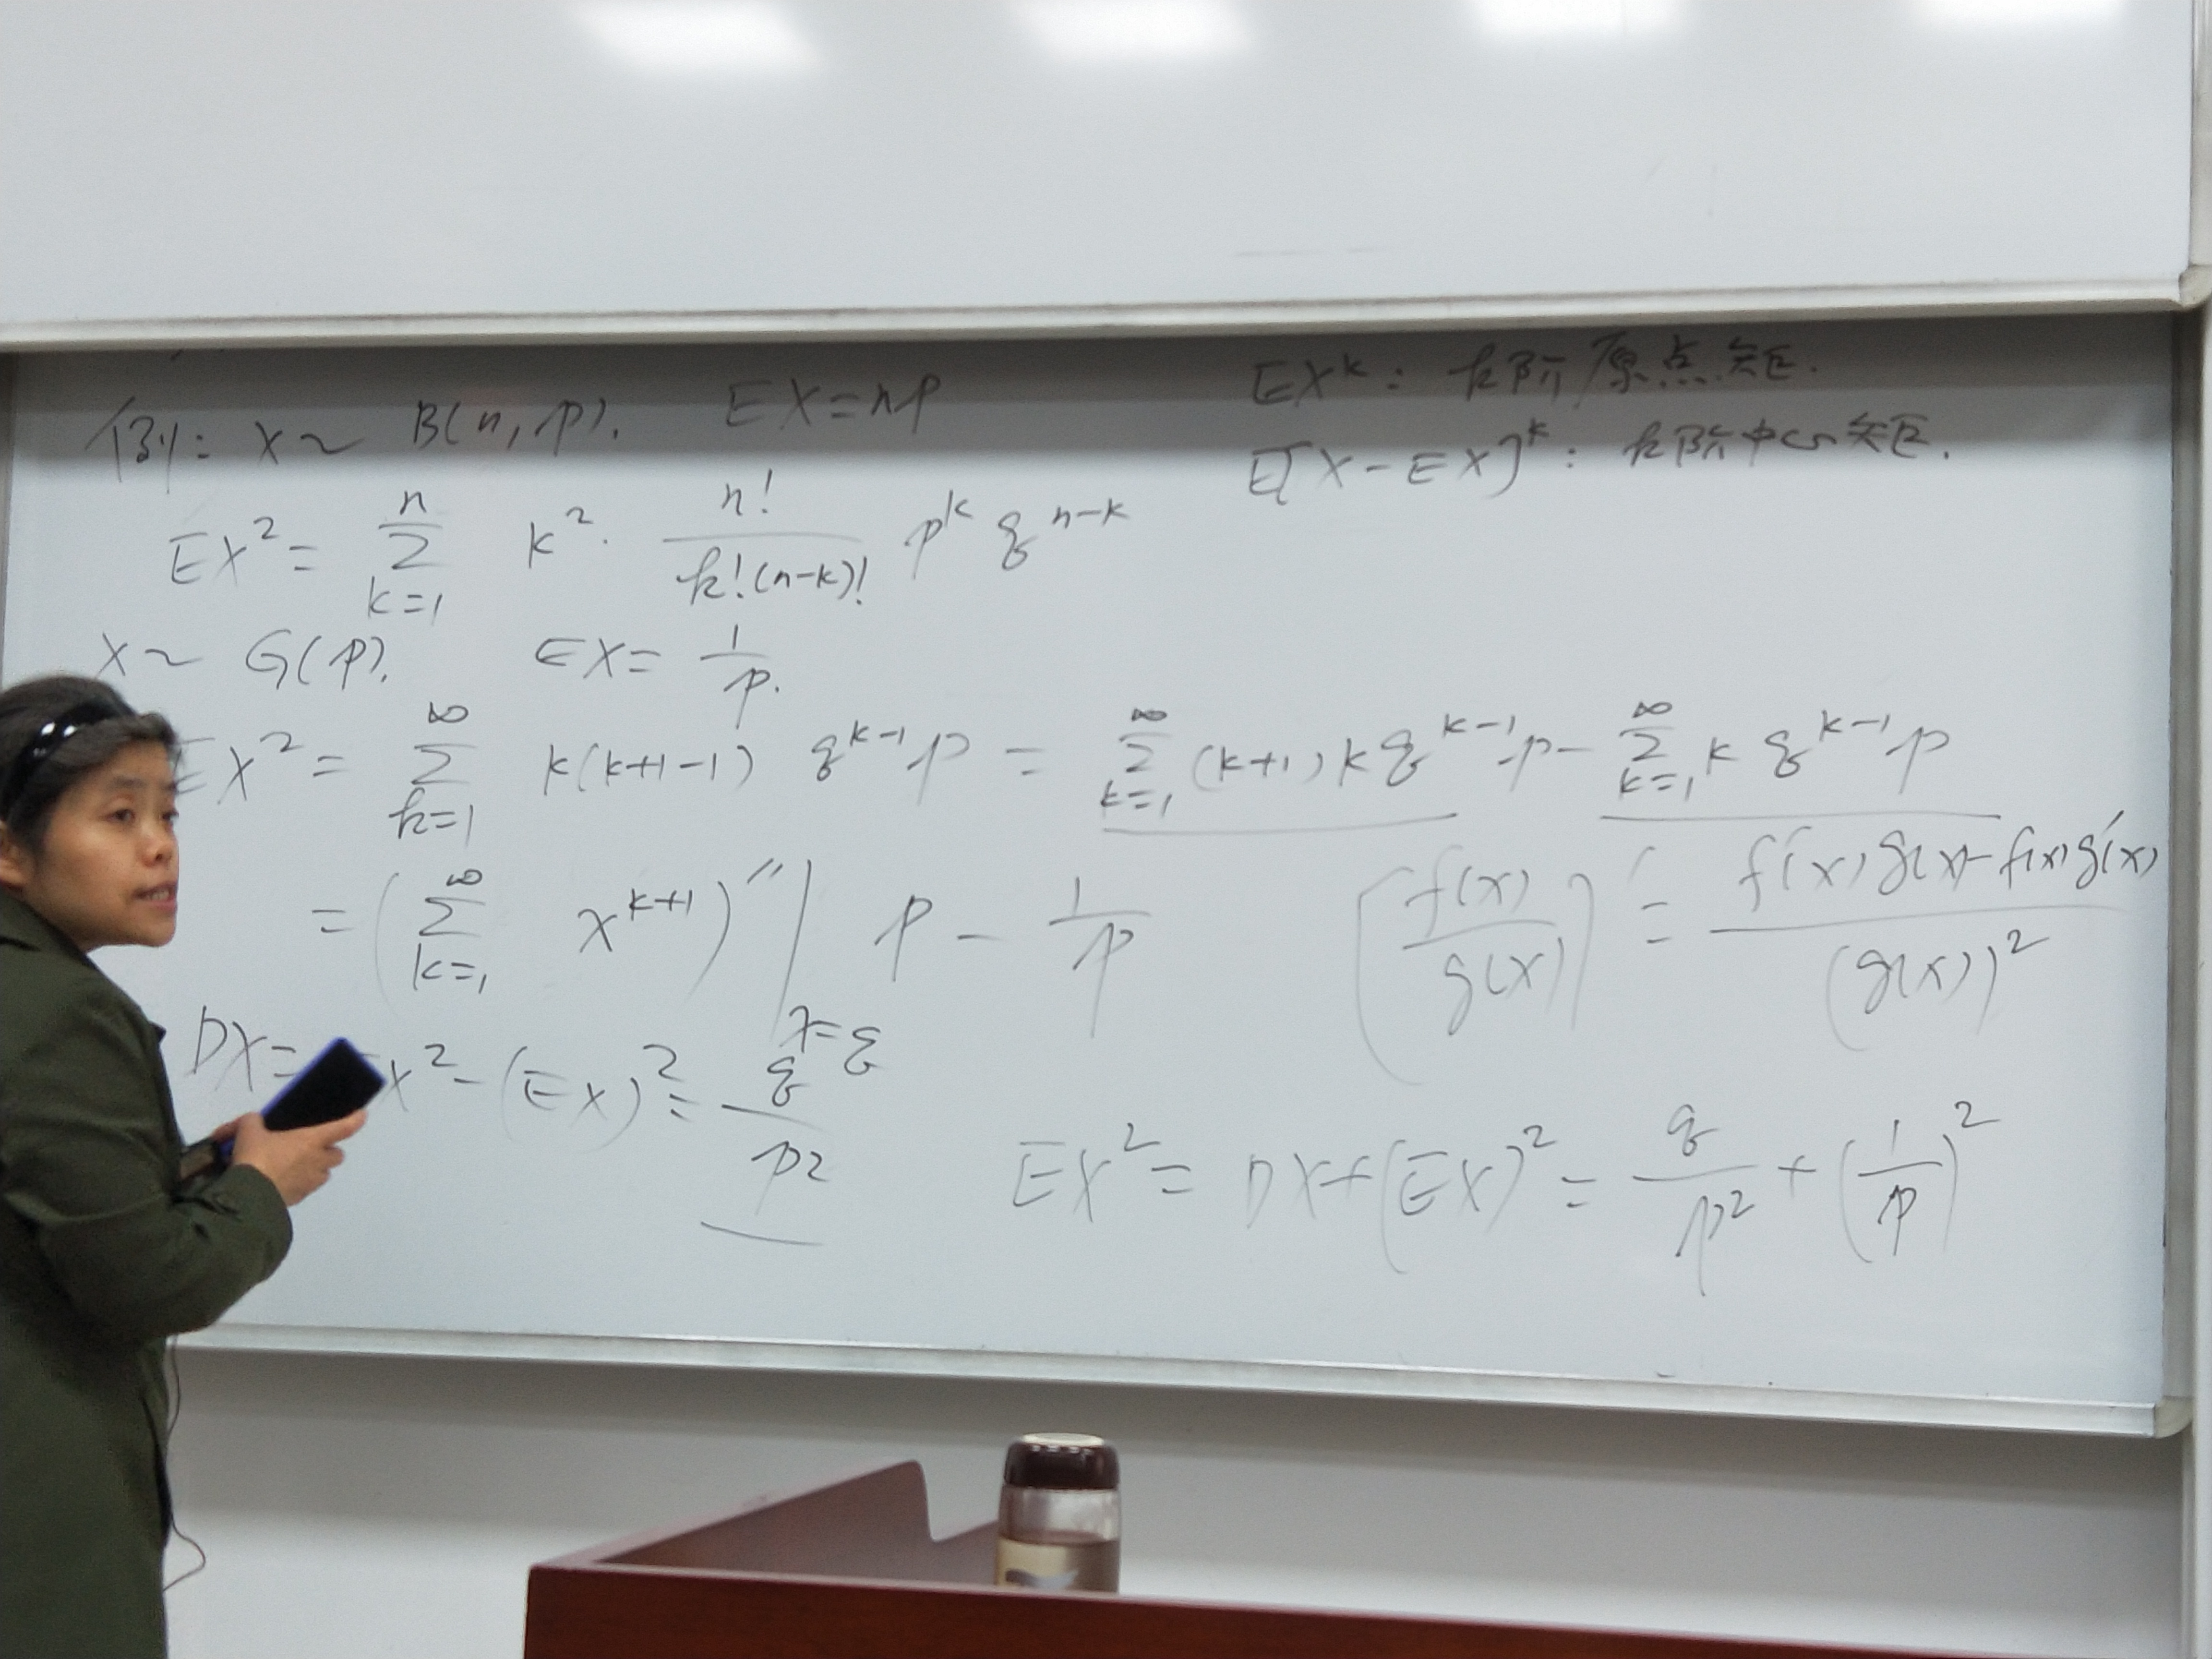 例: X ~ B(n, p). EX = np
EX^k : k阶原点矩.
E[X - EX]^k : k阶中心矩.
EX² = \sum_{k=1}^{n} k² · \frac{n!}{k!(n-k)!} p^k q^{n-k}
X ~ G(p). EX = \frac{1}{p}.
EX² = \sum_{k=1}^{∞} k(k+1-1) q^{k-1} p = \sum_{k=1}^{∞} (k+1) k q^{k-1} p - \sum_{k=1}^{∞} k q^{k-1} p
= (\sum_{k=1}^{∞} x^{k+1})'' |_{x=q} p - \frac{1}{p}
(\frac{f(x)}{g(x)})' = \frac{f'(x)g(x) - f(x)g'(x)}{(g(x))²}
DX = X² - (EX)² = \frac{q}{p²}
EX² = DX + (EX)² = \frac{q}{p²} + (\frac{1}{p})²